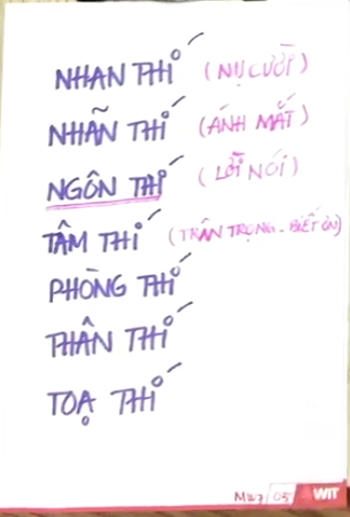 NHAN THÍ (NỤ CƯỜI)
NHÃN THÍ (ÁNH MẮT)
NGÔN THÍ (LỜI NÓI)
TÂM THÍ (TRÂN TRỌNG - BIẾT ƠN)
PHÒNG THÍ
THÂN THÍ
TOẠ THÍ
05 WIT